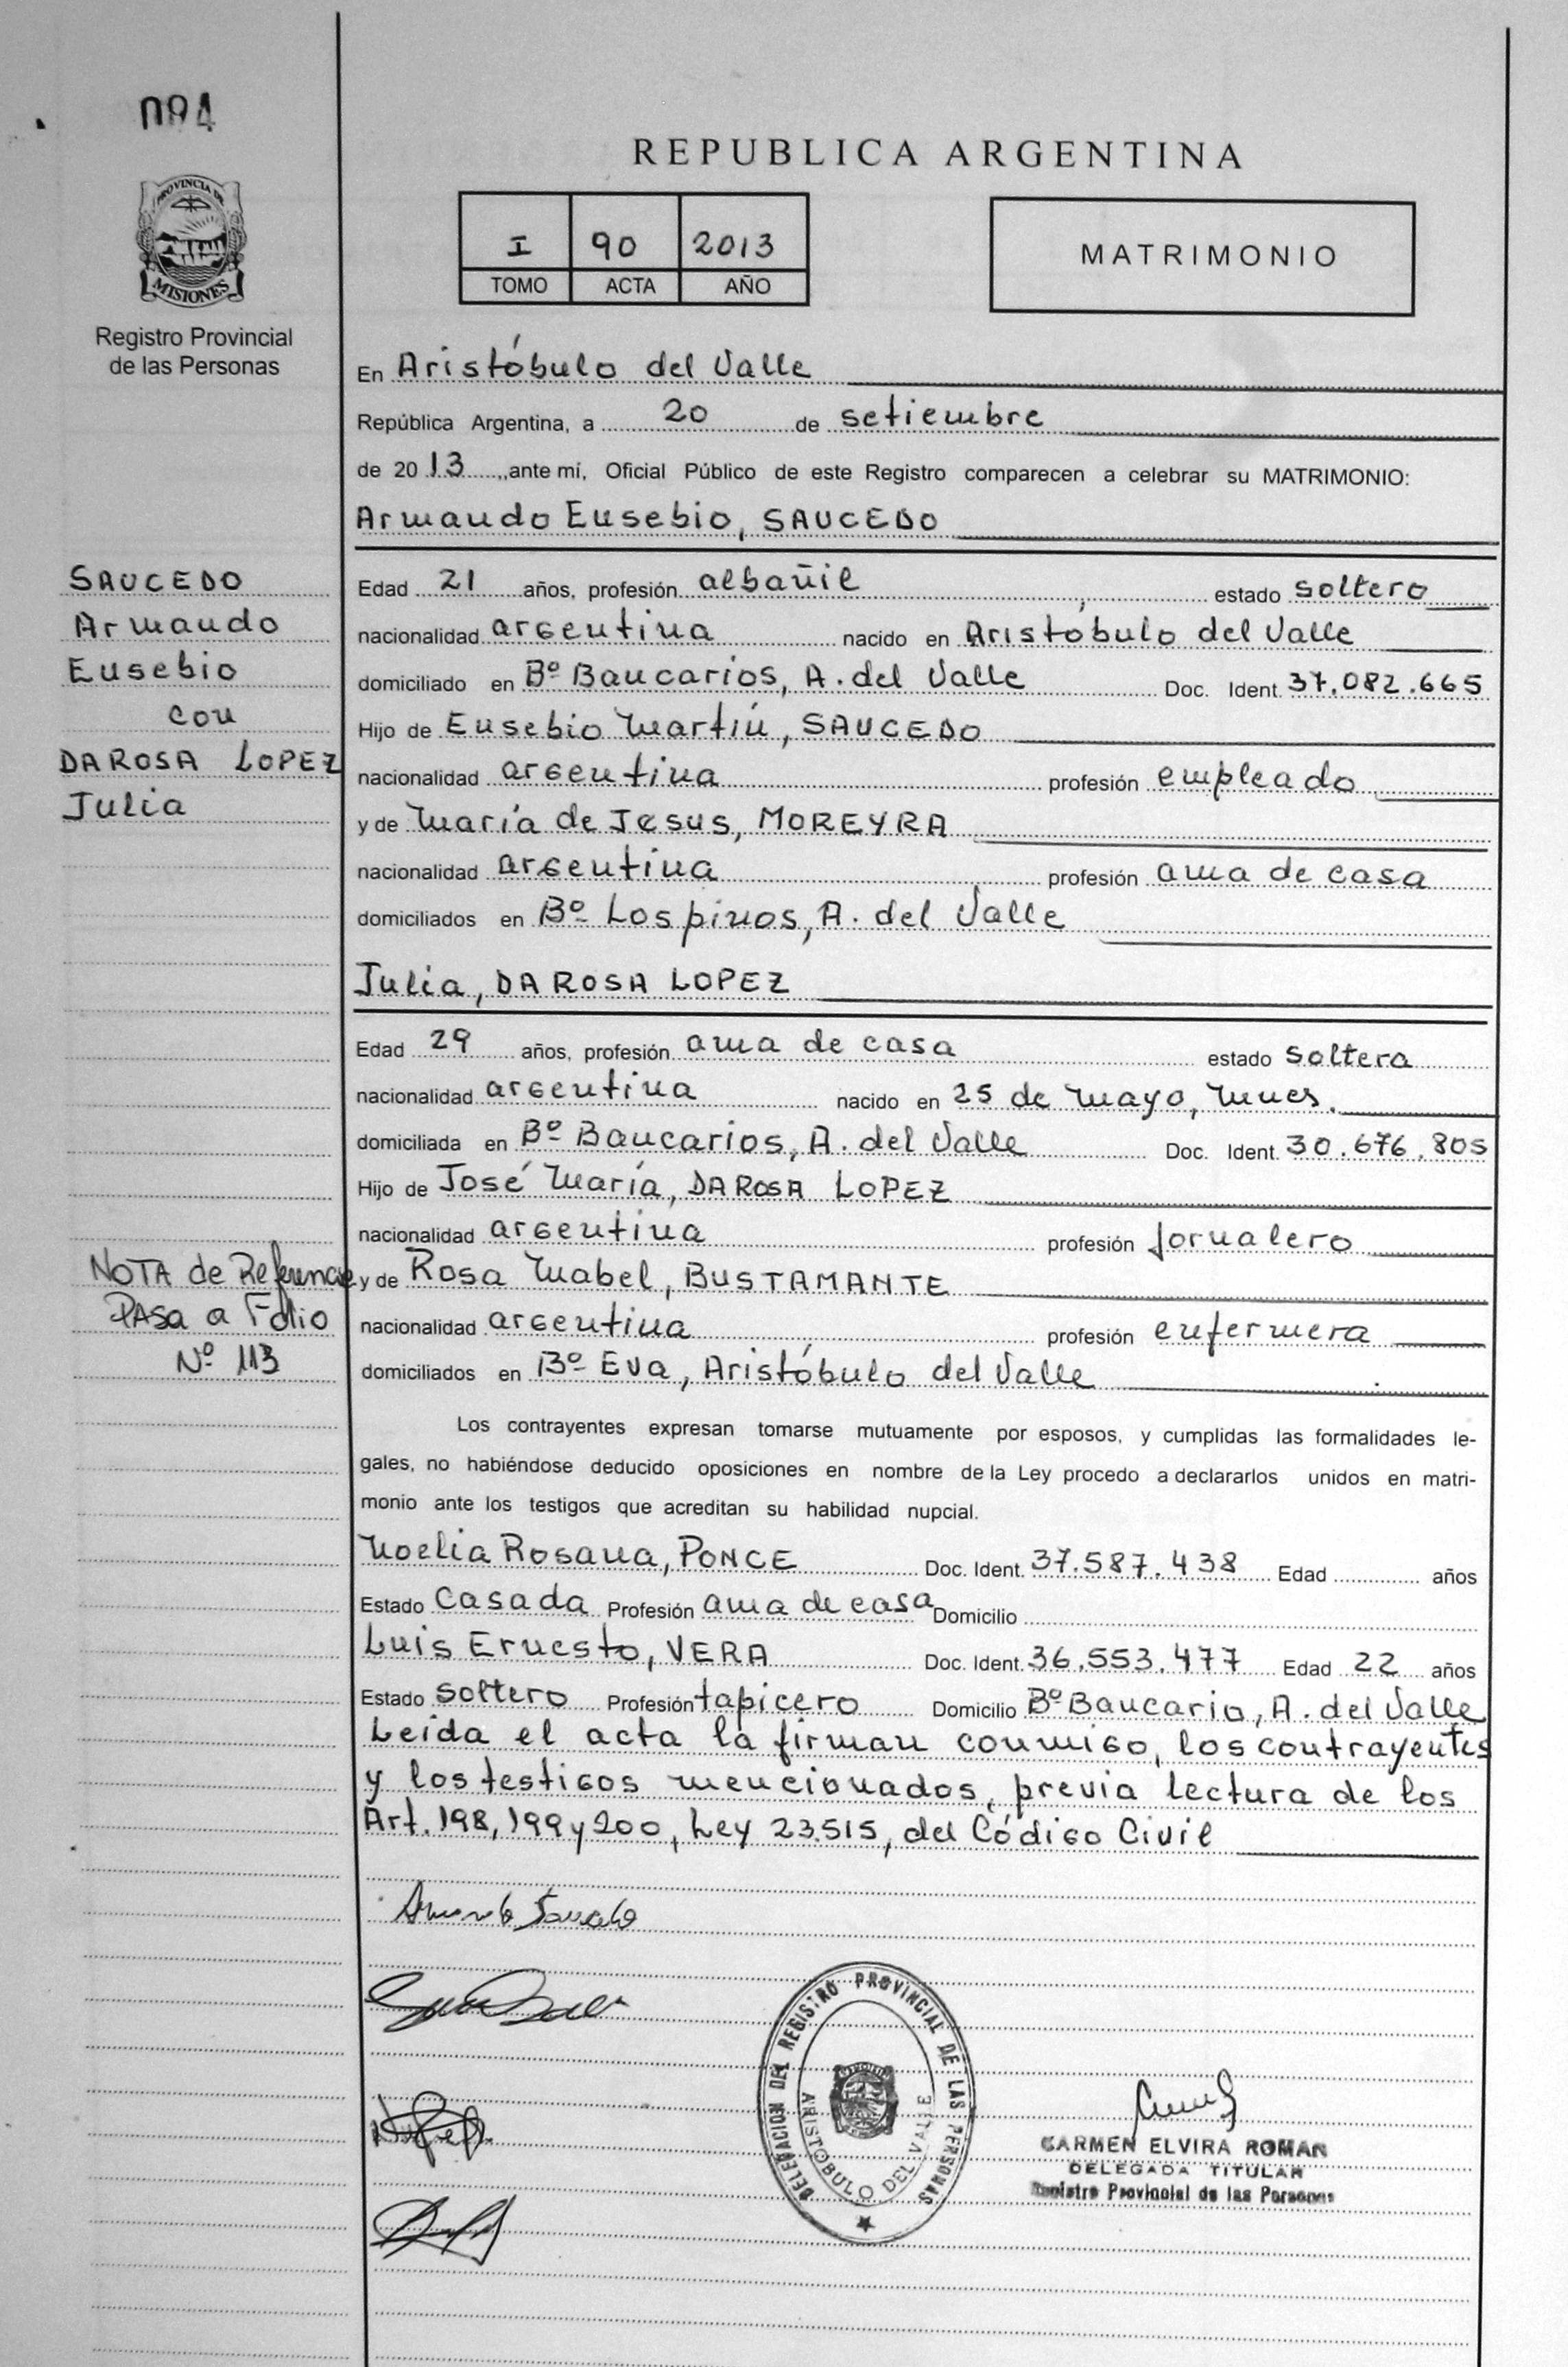 094
PROVINCIA DE
MISIONES
Registro Provincial
de las Personas
REPUBLICA ARGENTINA
I 90 2013
TOMO ACTA AÑO
MATRIMONIO
En Aristóbulo del Valle
República Argentina, a 20 de setiembre
de 2013, ante mí, Oficial Público de este Registro comparecen a celebrar su MATRIMONIO:
Armando Eusebio, SAUCEDO
SAUCEDO
Armando
Eusebio
con
DA ROSA LOPEZ
Julia
Edad 21 años, profesión albañil estado soltero
nacionalidad argentina nacido en Aristóbulo del Valle
domiciliado en Bº Bancarios, A. del Valle Doc. Ident. 37.082.665
Hijo de Eusebio Martín, SAUCEDO
nacionalidad argentina profesión empleado
y de María de Jesus, MOREYRA
nacionalidad argentina profesión ama de casa
domiciliados en Bº Los pinos, A. del Valle
Julia, DA ROSA LOPEZ
Edad 29 años, profesión ama de casa estado soltera
nacionalidad argentina nacido en 25 de Mayo, Mnes.
domiciliada en Bº Bancarios, A. del Valle Doc. Ident. 30.676.805
Hijo de José María, DA ROSA LOPEZ
nacionalidad argentina profesión jornalero
y de Rosa Mabel, BUSTAMANTE
nacionalidad argentina profesión enfermera
domiciliados en Bº Eva, Aristóbulo del Valle
NOTA de Referencia
PASA a Folio
Nº 113
Los contrayentes expresan tomarse mutuamente por esposos, y cumplidas las formalidades le-
gales, no habiéndose deducido oposiciones en nombre de la Ley procedo a declararlos unidos en matri-
monio ante los testigos que acreditan su habilidad nupcial.
Noelia Rosana, PONCE Doc. Ident. 37.587.438 Edad años
Estado Casada Profesión ama de casa Domicilio
Luis Ernesto, VERA Doc. Ident. 36.553.477 Edad 22 años
Estado soltero Profesión tapicero Domicilio Bº Bancario, A. del Valle
Leida el acta la firman conmigo, los contrayentes
y los testigos mencionados, previa lectura de los
Art. 198, 199 y 200, Ley 23.515, del Código Civil
DELEGACION DEL REGISTRO PROVINCIAL DE LAS PERSONAS
ARISTOBULO DEL VALLE
CARMEN ELVIRA ROMAN
DELEGADA TITULAR
Registro Provincial de las Personas